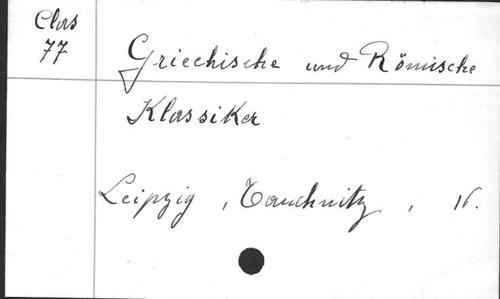 Clas
77
Griechische und Römische
Klassiker
Leipzig, Tauchnitz, 16.